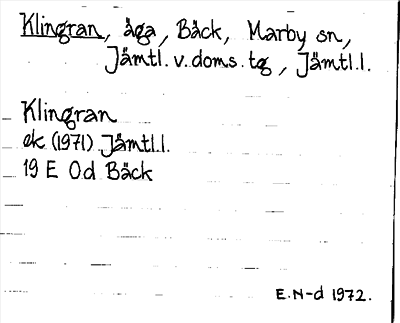 Klingran, åga, Bäck, Marby sn,
Jämtl. v. doms. tg, Jämtl. l.
Klingran
ek (1971) Jämtl. l.
19 E 0d Bäck
E. N-d 1972.